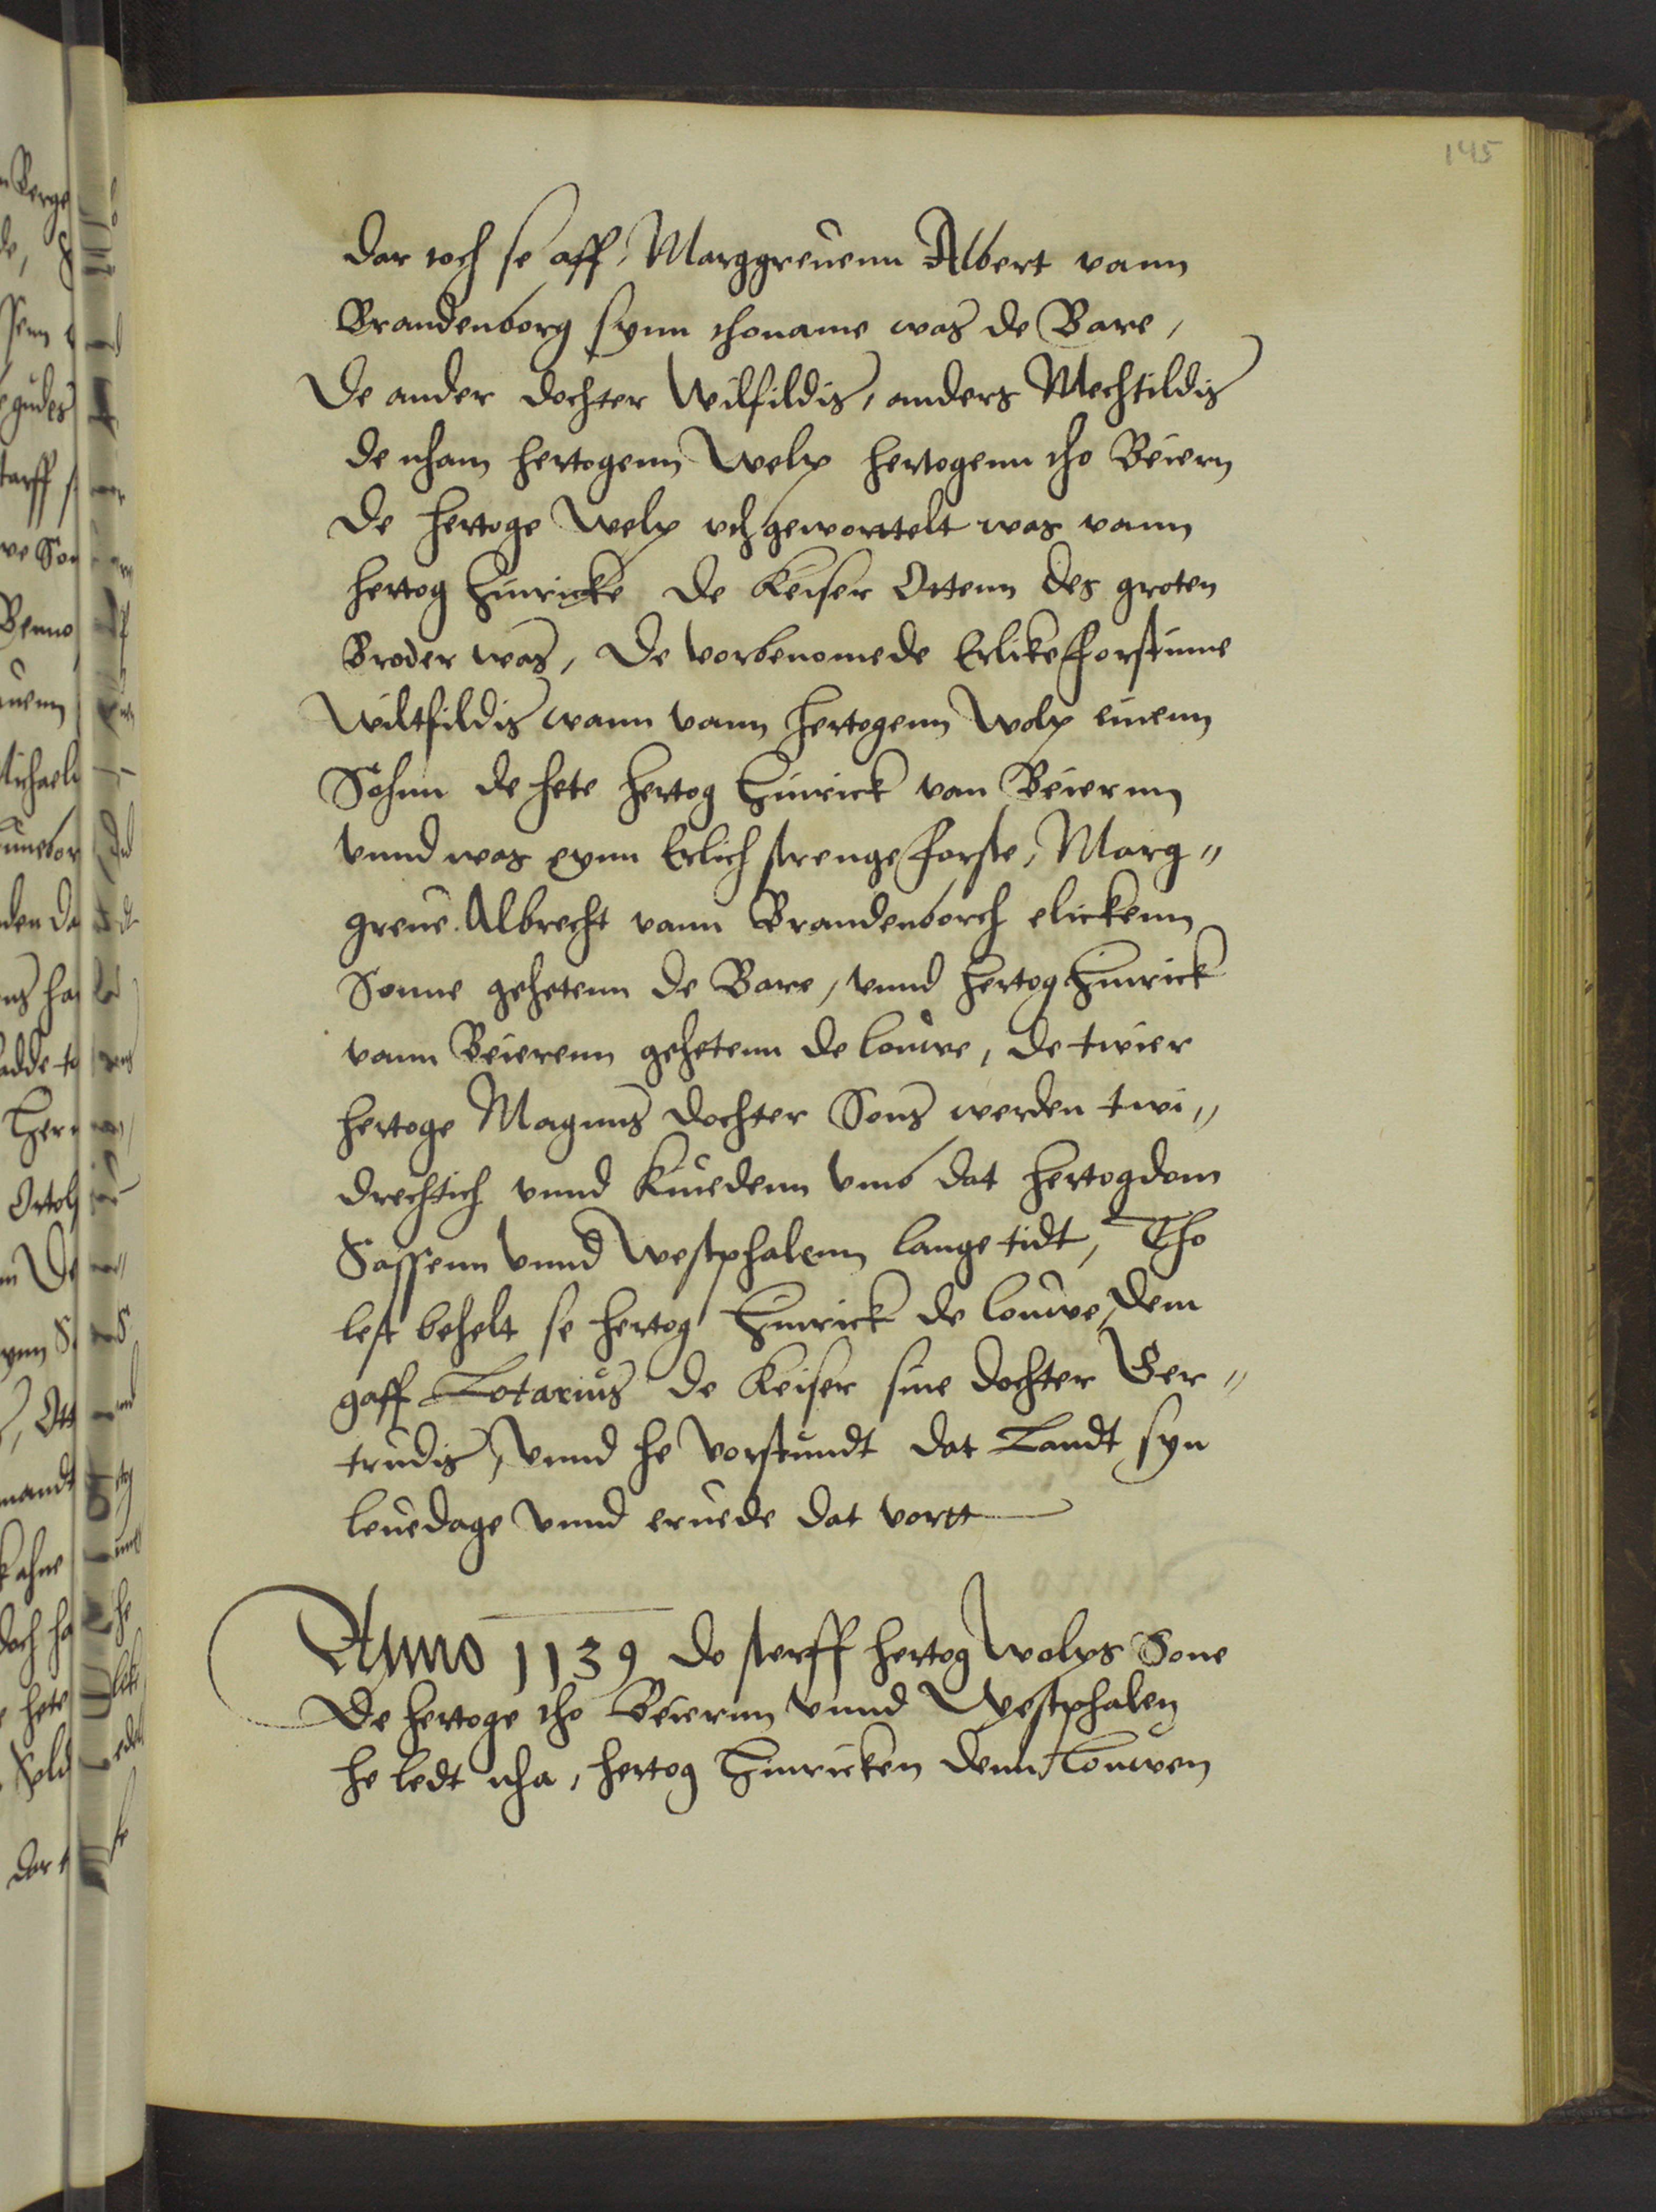 145
Dar toch se aff, Marggreuenn Albert vann
Brandenborg synn thoname was de Bare,
De ander dochter Wilfildis, anders Mechtildis
de nham hertogenn Welp hertogenn tho Beiern
De hertoge Welp vthgewortelt was vann
hertog Hinricke de Keiser Ottenn des groten
Broder was, De vorbenomede Erlike Forstinne
Wiltfildis wann vann hertogenn Wolp einenn
Sohnn de hete hertog Hinrick van Beiernn
vnnd was eynn Erlich strenge Forste, Marg„
greue Albrecht vann Brandenborch elickenn
Sonne gehetenn de Bare, vnnd hertog Hinrick
vann Beierenn gehetenn de louwe, de twier
hertoge Magnus dochter Sons werden twi„
drechtich vnnd Kiuedenn vmb dat hertogdom
Sassenn vnnd Westphalenn lange tidt, Tho
lest behelt se hertog Hinrick de louwe, dem
gaff Lotarius de Keiser sine dochter Ger„
trudis, vnnd he vorstundt dat Landt syn
leuedage vnnd eruede dat vortt
Anno 1139 do sterff hertog Wolps Sone
De hertoge tho Beiernn vnnd Westphalen
he ledt nha, hertog Hinricken denn Louwen